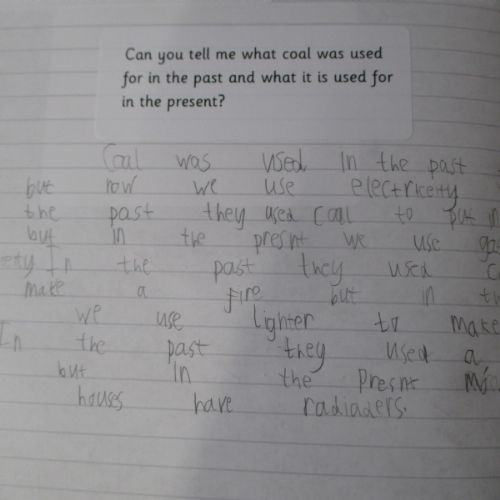 Can you tell me what coal was used
for in the past and what it is used for
in the present?
Coal was used In the past
but now we use electriceity
the past they used Coal to put
but in the presnt we use
In the past they used
make a fire but in
we use lighter to make
In the past they used a
but In the Presnt
houses have radiaders.